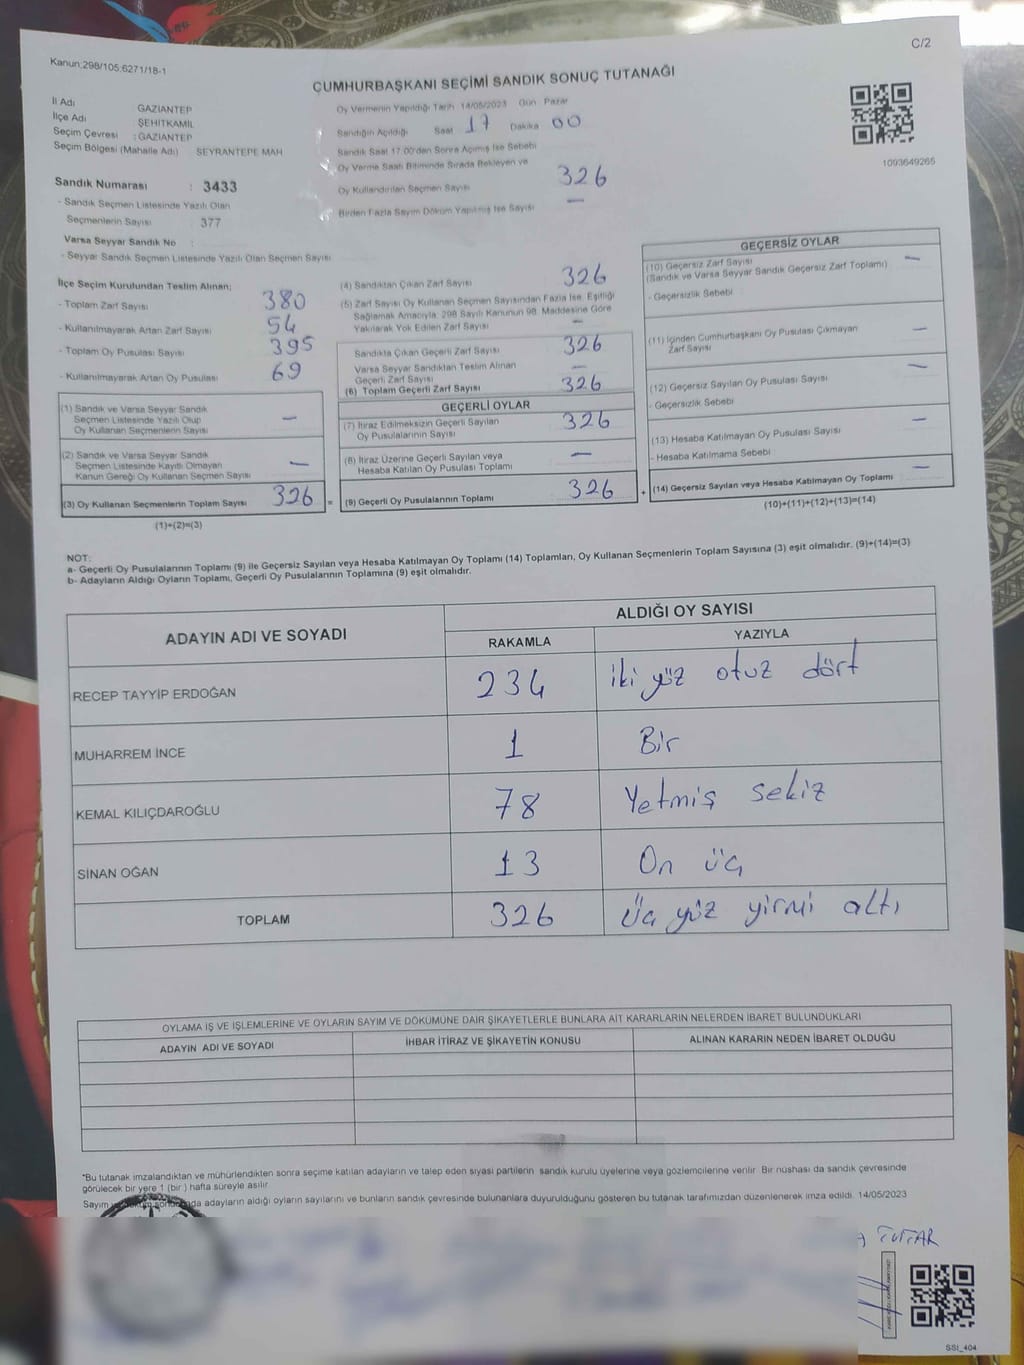 C/2
Kanun:298/105,6271/18-1
CUMHURBAŞKANI SEÇİMİ SANDIK SONUÇ TUTANAĞI
İl Adı GAZİANTEP
İlçe Adı ŞEHİTKAMİL
Seçim Çevresi : GAZİANTEP
Seçim Bölgesi (Mahalle Adı) SEYRANTEPE MAH
Sandık Numarası : 3433
- Sandık Seçmen Listesinde Yazılı Olan
Seçmenlerin Sayısı 377
Varsa Seyyar Sandık No :
- Seyyar Sandık Seçmen Listesinde Yazılı Olan Seçmen Sayısı
Oy Vermenin Yapıldığı Tarih 14/05/2023 Gün Pazar
Sandığın Açıldığı Saat 17 Dakika 00
Sandık Saat 17:00'den Sonra Açılmış İse Sebebi
Oy Verme Saati Bitiminde Sırada Bekleyen ve
Oy Kullandırılan Seçmen Sayısı 326
Birden Fazla Sayım Döküm Yapılmış İse Sayısı —
1093649265
İlçe Seçim Kurulundan Teslim Alınan;
- Toplam Zarf Sayısı 380
- Kullanılmayarak Artan Zarf Sayısı 54
- Toplam Oy Pusulası Sayısı 395
- Kullanılmayarak Artan Oy Pusulası 69
(1) Sandık ve Varsa Seyyar Sandık
Seçmen Listesinde Yazılı Olup
Oy Kullanan Seçmenlerin Sayısı —
(2) Sandık ve Varsa Seyyar Sandık
Seçmen Listesinde Kayıtlı Olmayan
Kanun Gereği Oy Kullanan Seçmen Sayısı —
(3) Oy Kullanan Seçmenlerin Toplam Sayısı 326 =
(1)+(2)=(3)
(4) Sandıktan Çıkan Zarf Sayısı 326
(5) Zarf Sayısı Oy Kullanan Seçmen Sayısından Fazla İse, Eşitliği
Sağlamak Amacıyla, 298 Sayılı Kanunun 98. Maddesine Göre
Yakılarak Yok Edilen Zarf Sayısı —
Sandıkta Çıkan Geçerli Zarf Sayısı 326
Varsa Seyyar Sandıktan Teslim Alınan
Geçerli Zarf Sayısı —
(6) Toplam Geçerli Zarf Sayısı 326
GEÇERLİ OYLAR
(7) İtiraz Edilmeksizin Geçerli Sayılan
Oy Pusulalarının Sayısı 326
(8) İtiraz Üzerine Geçerli Sayılan veya
Hesaba Katılan Oy Pusulası Toplamı —
(9) Geçerli Oy Pusulalarının Toplamı 326 +
GEÇERSİZ OYLAR
(10) Geçersiz Zarf Sayısı —
(Sandık ve Varsa Seyyar Sandık Geçersiz Zarf Toplamı)
- Geçersizlik Sebebi
(11) İçinden Cumhurbaşkanı Oy Pusulası Çıkmayan
Zarf Sayısı —
(12) Geçersiz Sayılan Oy Pusulası Sayısı —
- Geçersizlik Sebebi
(13) Hesaba Katılmayan Oy Pusulası Sayısı —
- Hesaba Katılmama Sebebi
(14) Geçersiz Sayılan veya Hesaba Katılmayan Oy Toplamı —
(10)+(11)+(12)+(13)=(14)
NOT:
a- Geçerli Oy Pusulalarının Toplamı (9) ile Geçersiz Sayılan veya Hesaba Katılmayan Oy Toplamı (14) Toplamları, Oy Kullanan Seçmenlerin Toplam Sayısına (3) eşit olmalıdır. (9)+(14)=(3)
b- Adayların Aldığı Oyların Toplamı, Geçerli Oy Pusulalarının Toplamına (9) eşit olmalıdır.
ADAYIN ADI VE SOYADI ALDIĞI OY SAYISI
RAKAMLA YAZIYLA
RECEP TAYYİP ERDOĞAN 234 iki yüz otuz dört
MUHARREM İNCE 1 Bir
KEMAL KILIÇDAROĞLU 78 Yetmiş sekiz
SİNAN OĞAN 13 On üç
TOPLAM 326 Üç yüz yirmi altı
OYLAMA İŞ VE İŞLEMLERİNE VE OYLARIN SAYIM VE DÖKÜMÜNE DAİR ŞİKAYETLERLE BUNLARA AİT KARARLARIN NELERDEN İBARET BULUNDUKLARI
ADAYIN ADI VE SOYADI İHBAR İTİRAZ VE ŞİKAYETİN KONUSU ALINAN KARARIN NEDEN İBARET OLDUĞU
*Bu tutanak imzalandıktan ve mühürlendikten sonra seçime katılan adayların ve talep eden siyasi partilerin sandık kurulu üyelerine veya gözlemcilerine verilir. Bir nüshası da sandık çevresinde
görülecek bir yere 1 (bir ) hafta süreyle asılır.
Sayım adayların aldığı oyların sayılarını ve bunların sandık çevresinde bulunanlara duyurulduğunu gösteren bu tutanak tarafımızdan düzenlenerek imza edildi. 14/05/2023
TUTAR
SSI_404